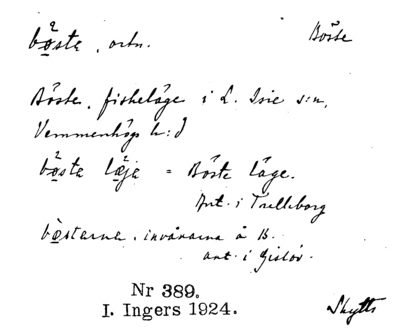 bo̲ste, ortn. Böste
Böste, fiskeläge i L. Isie s:n,
Vemmenhögs h:d
bo̲ste lä̲je = Böste läge.
Ant. i Trelleborg
bo̲starna, invånarna å B.
ant. i Gislöv.
Nr 389.
I. Ingers 1924. Skytts